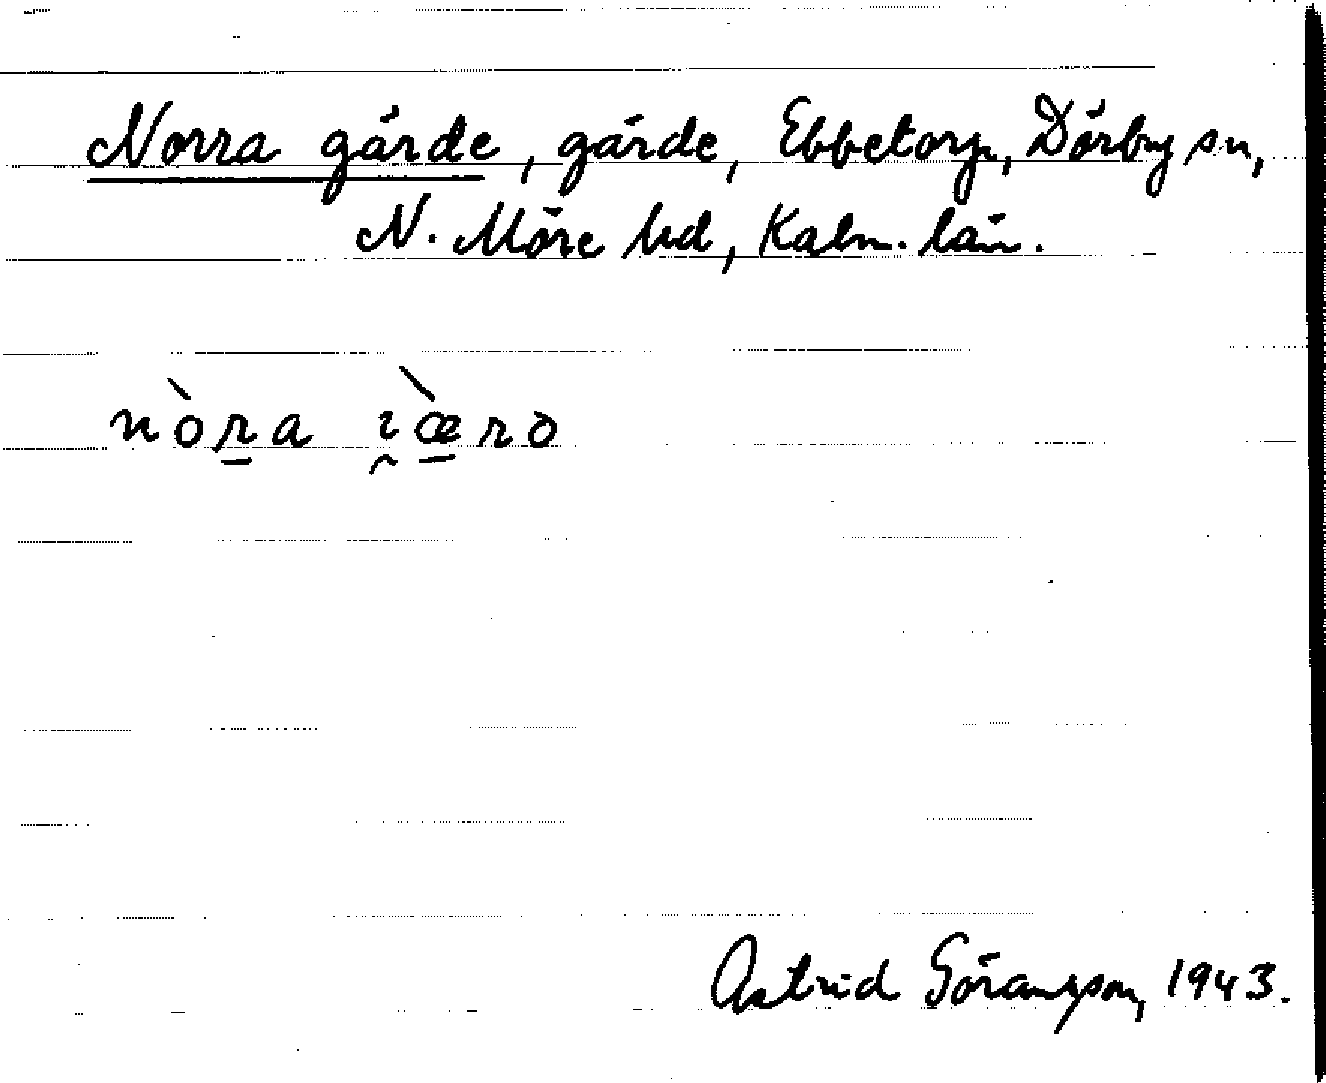 Norra gärde, gärde, Ebbetorp, Dörby sn,
N. Möre hd, Kalm. län.
nòra ɪ̯æ̀ro
Astrid Göransson, 1943.